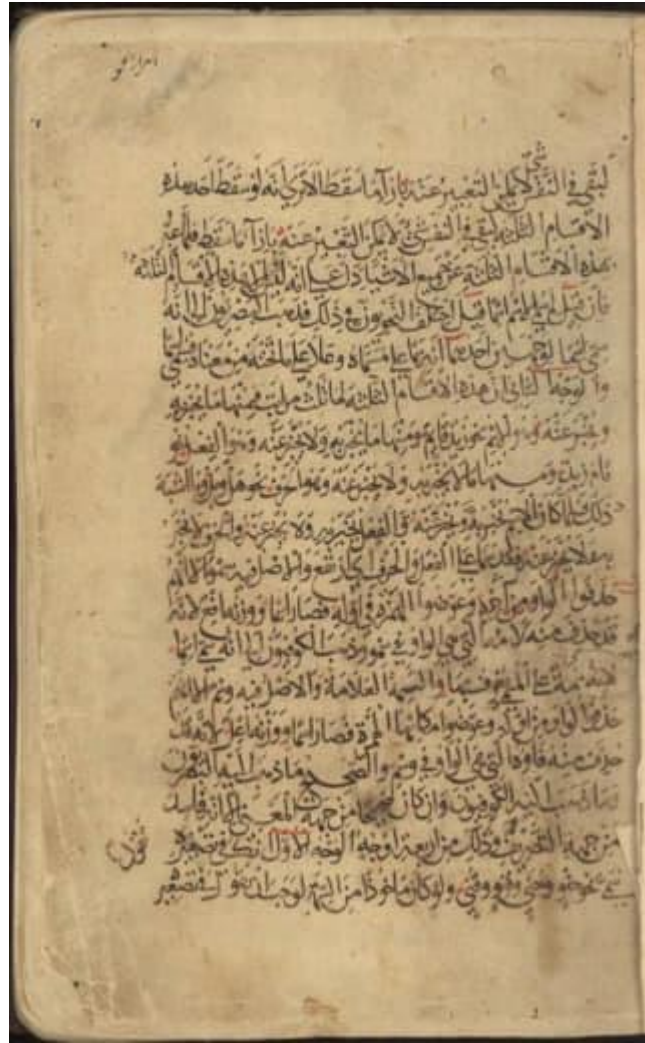 لبقي في النفس شيء لا يمكن التعبير عنه بازآء ما سقط الا ترى انه لو سقط احد هذه
الاقسام الثلثة لبقي في النفس شيء لا يمكن التعبير عنه بازآء ما سقط فلما عبّر
بهذه الاقسام الثلثة عن جميع الاشياء دل على انه هذه الاقسام الثلثة
فان قيل لم سمي الاسم اسما قيل اختلف النحويون في ذلك فذهب البصريون الى انه
سمي اسما لوجهين احدهما انه سما على مسماه وعلا على ما تحته من معناه فسمي اسما
والوجه الثاني ان هذه الاقسام الثلثة لها ثلث مراتب فمنها ما يخبر به
ويخبر عنه وهو الاسم نحو زيد قايم ومنها ما يخبر به ولا يخبر عنه وهو الفعل نحو
قام زيد ومنها ما لا يخبر به ولا يخبر عنه وهو الحرف نحو هل وبل وما اشبه
ذلك فلما كان الاسم يخبر به ويخبر عنه والفعل يخبر به ولا يخبر عنه والحرف لا يخبر
به ولا يخبر عنه فقد سما على الفعل والحرف اي ارتفع والاصل فيه سمو الا انهم
حذفوا الواو من آخره وعوضوا الهمزة في اوله فصار اسما ووزنه افع لانه
قد حذف منه لامه التي هي الواو في سمو وذهب الكوفيون الى انه سمي اسما
لانه سمة على المسمى يعرف بها والسمة العلامة والاصل فيه وسم الا انهم
حذفوا الواو من اوله وعوضوا مكانها الهمزة فصار اسما ووزنه اعل لانه قد
حذف منه فاوه التي هي الواو في وسم والصحيح ما ذهب اليه البصريون
وما ذهب اليه الكوفيون وان كان صحيحا من جهة المعنى الا انه فاسد
من جهة التصريف وذلك من اربعة اوجه الوجه الاول انك تقول في تصغير
سمي نحو حنو وحني وقنو وقني ولو كان ماخوذا من السمة لوجب ان تقول في تصغيره
تقول